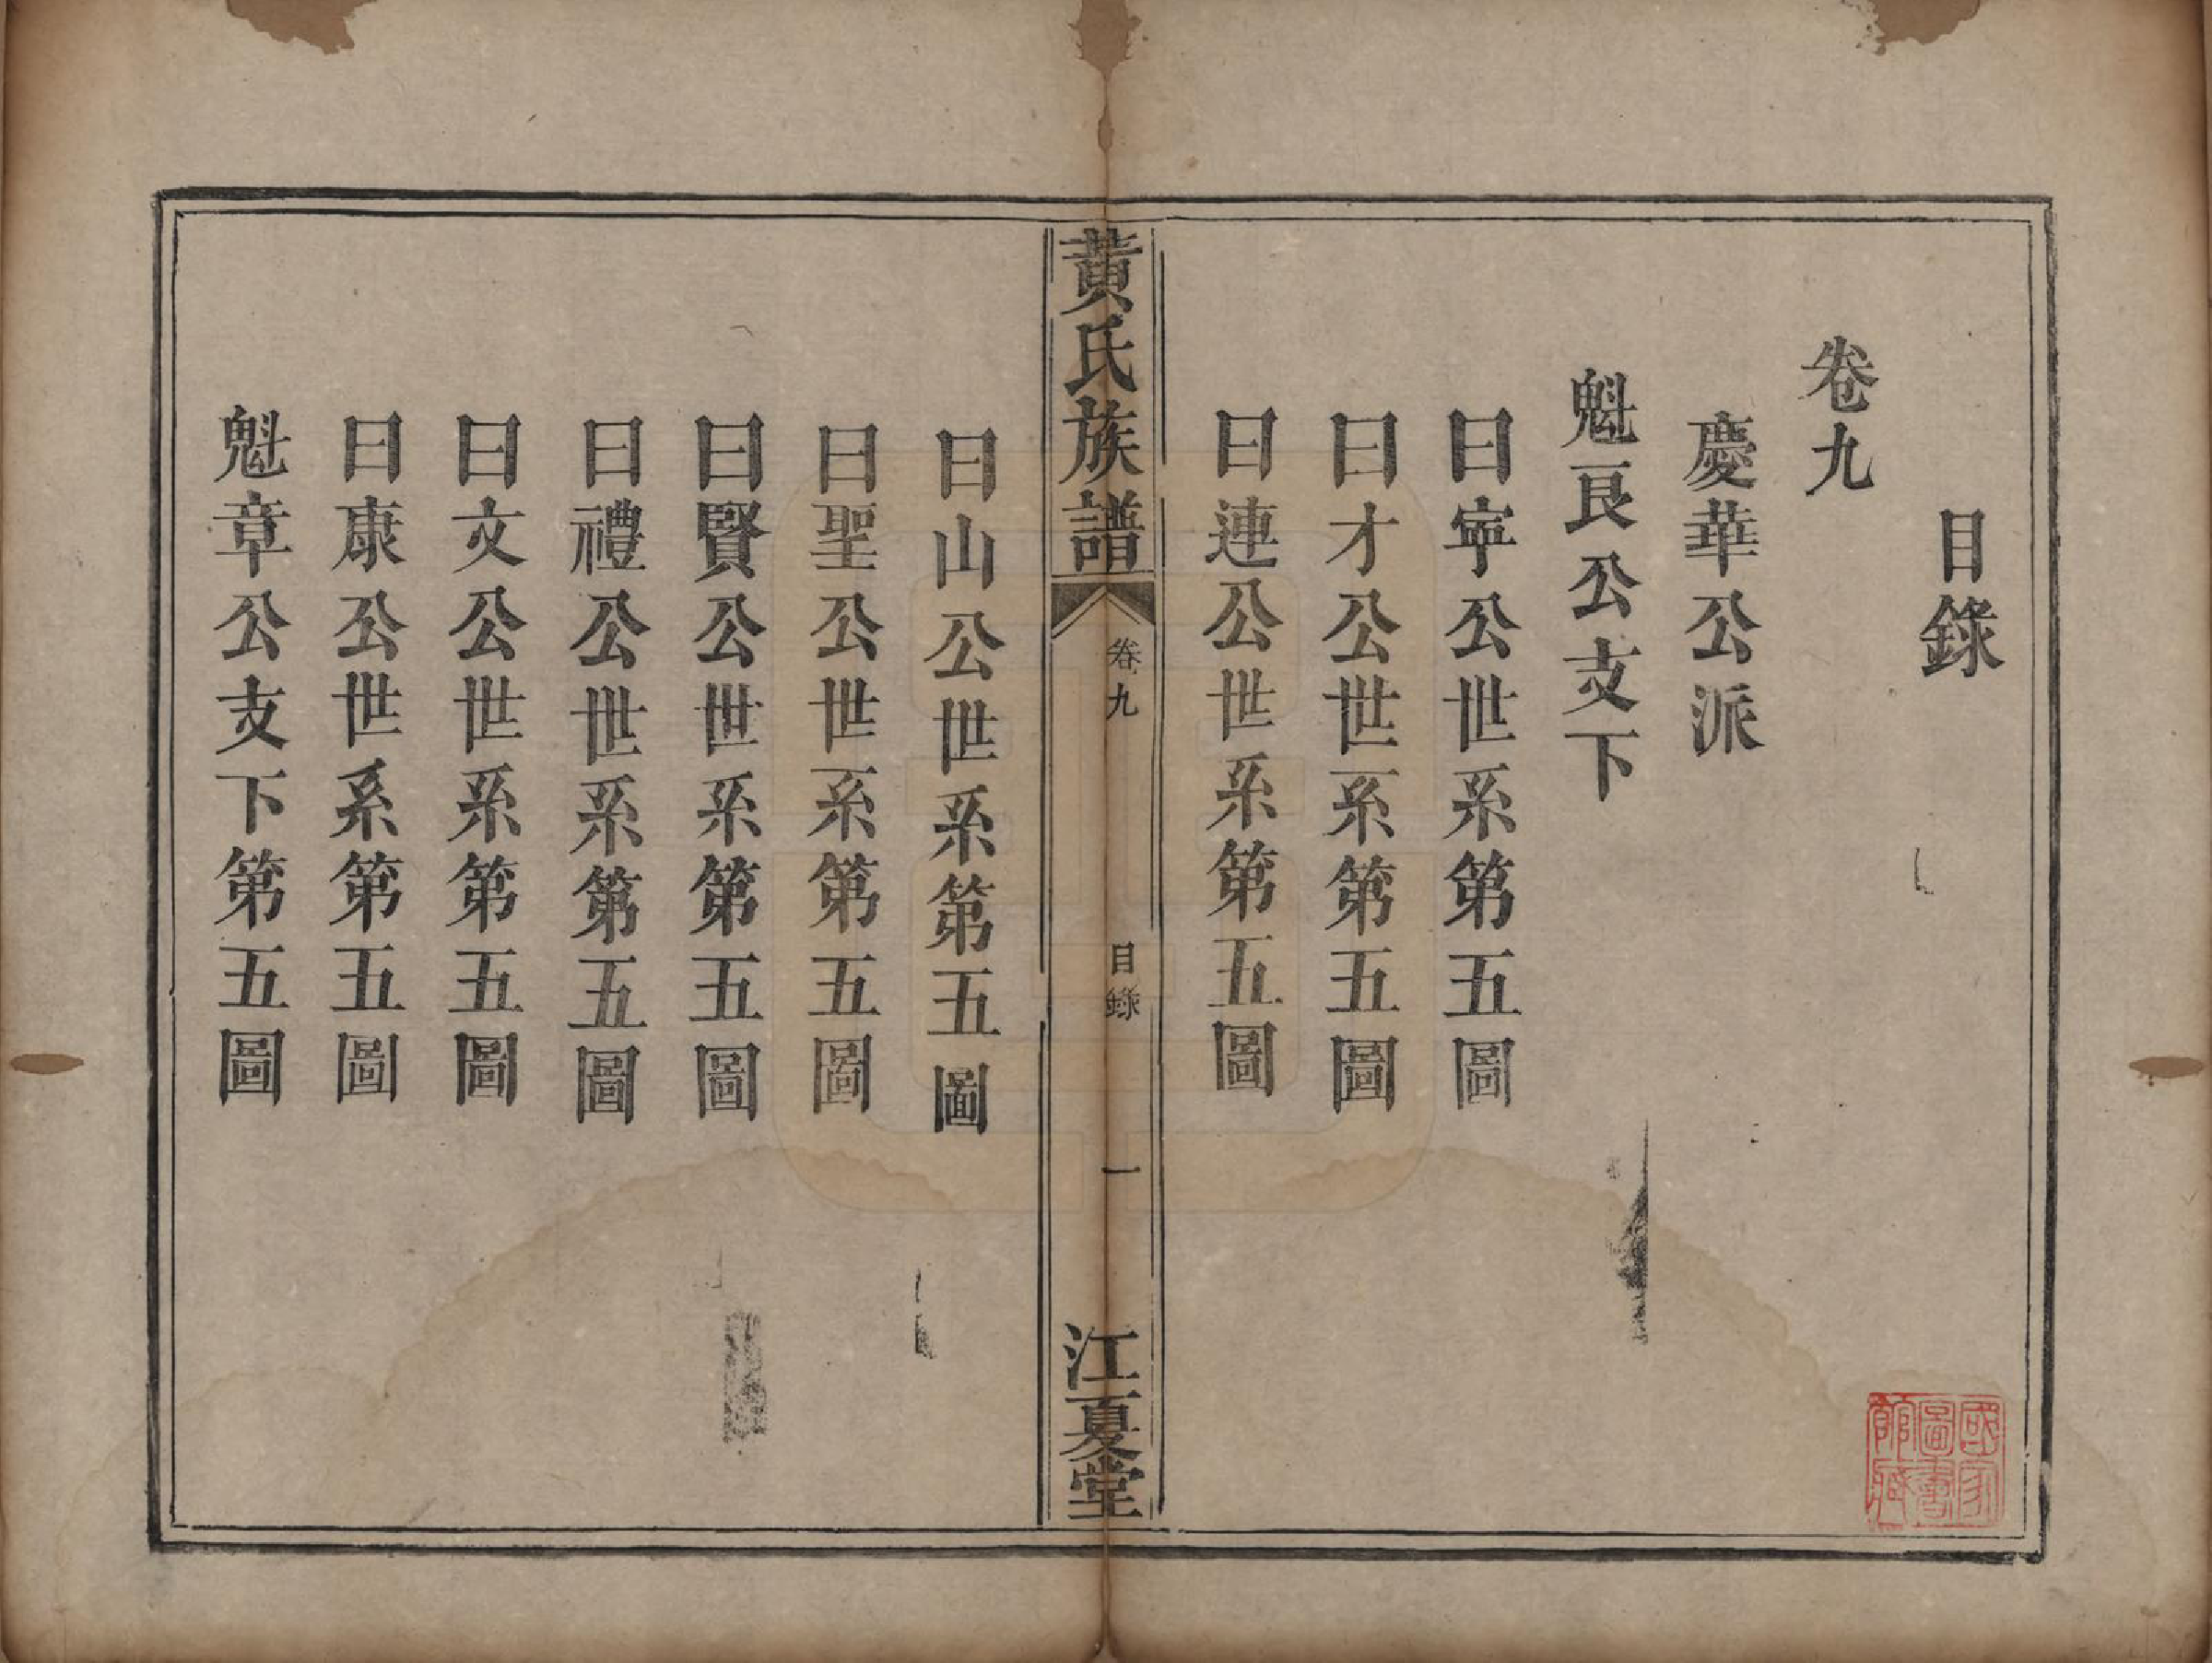 目錄
卷九
慶華公派
魁良公支下
曰寧公世系第五圖
曰才公世系第五圖
曰連公世系第五圖
黃氏族譜
卷九
目錄
一
江夏堂
曰山公世系第五圖
曰聖公世系第五圖
曰賢公世系第五圖
曰禮公世系第五圖
曰文公世系第五圖
曰康公世系第五圖
魁章公支下第五圖
國家
圖書
館藏